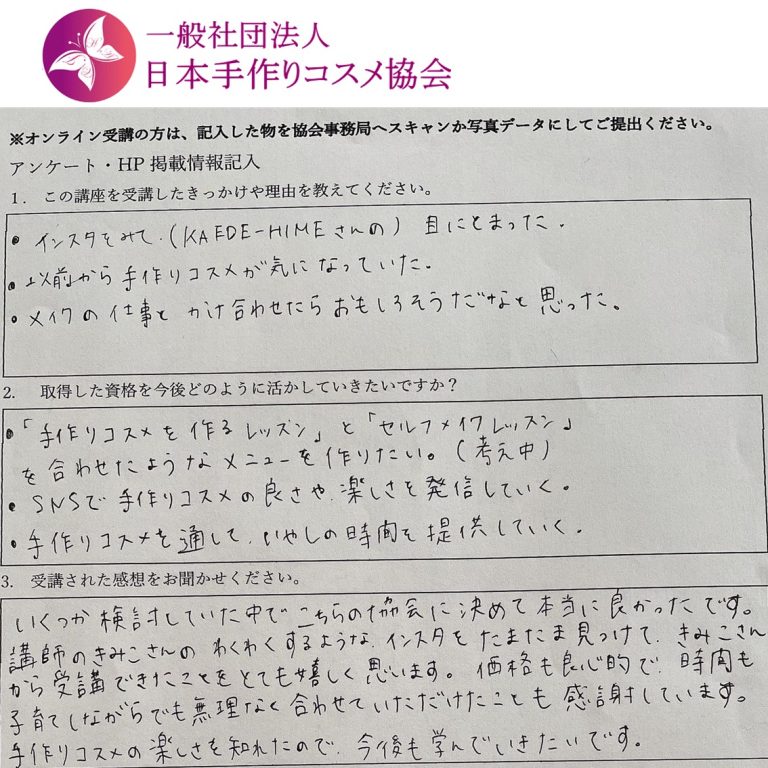 一般社団法人
日本手作りコスメ協会
※オンライン受講の方は、記入した物を協会事務局へスキャンか写真データにしてご提出ください。
アンケート・HP 掲載情報記入
1. この講座を受講したきっかけや理由を教えてください。
• インスタをみて、(KAEDE-HIMEさんの) 目にとまった。
• 以前から手作りコスメが気になっていた。
• メイクの仕事と かけ合わせたらおもしろそうだなと思った。
2. 取得した資格を今後どのように活かしていきたいですか？
• 「手作りコスメを作るレッスン」と「セルフメイクレッスン」
を合わせたようなメニューを作りたい。(考え中)
• SNSで手作りコスメの良さや、楽しさを発信していく。
• 手作りコスメを通して、いやしの時間を提供していく。
3. 受講された感想をお聞かせください。
いくつか検討していた中でこちらの協会に決めて本当に良かったです。
講師のきみこさんの わくわくするような、インスタを たまたま見つけて、きみこさん
から受講できたことをとても嬉しく思います。価格も良心的で、時間も
子育てしながらでも無理なく合わせていただけたことも感謝しています。
手作りコスメの楽しさを知れたので、今後も学んでいきたいです。